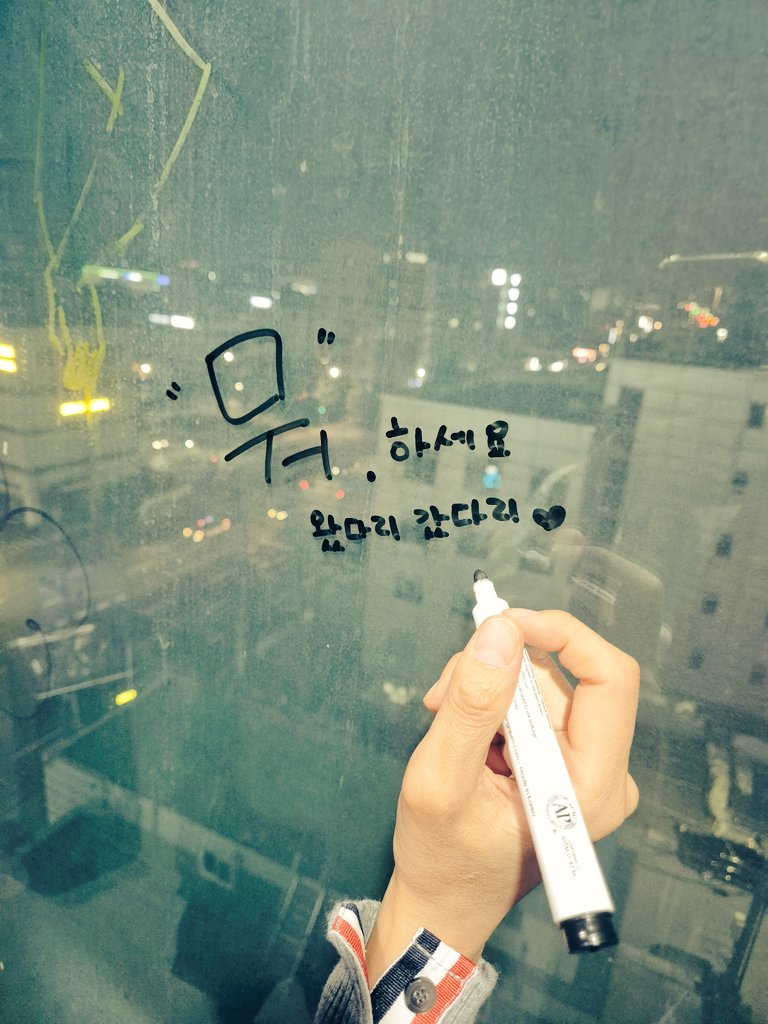 "뭐. 하세요
왔다리 갔다리 ♥
AP